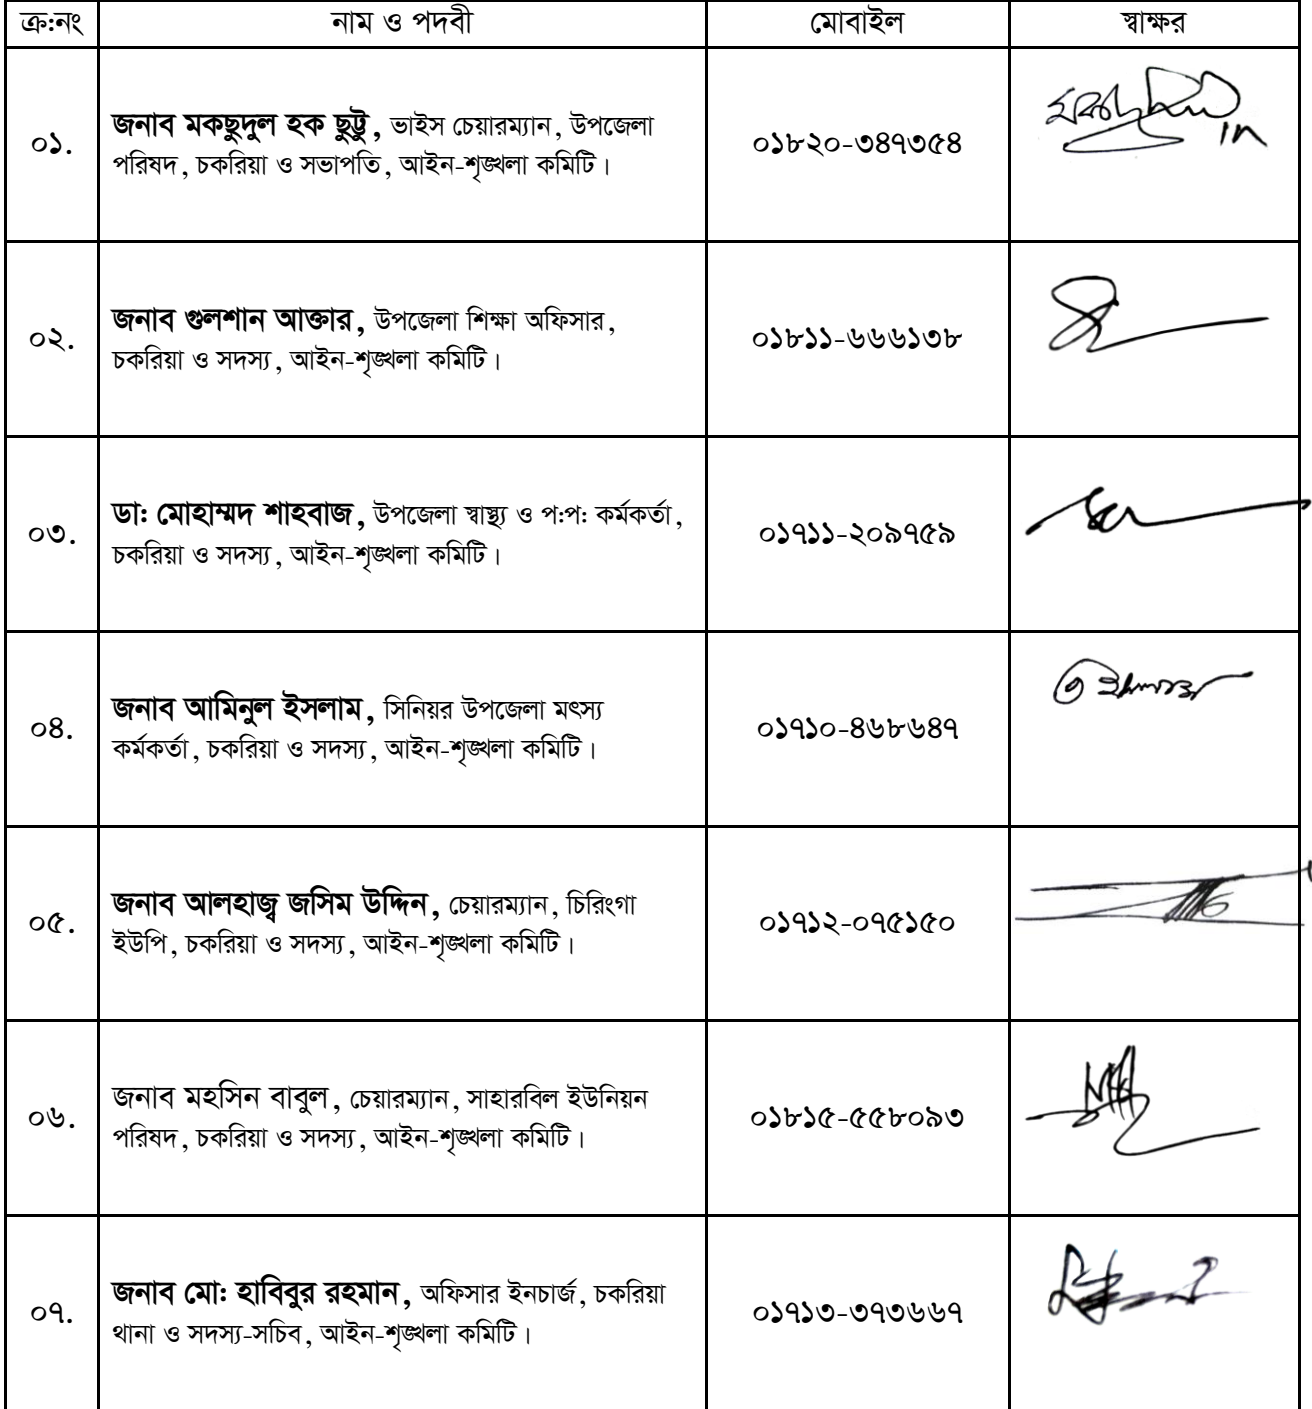 ক্র:নং নাম ও পদবী মোবাইল স্বাক্ষর
০১. জনাব মকছুদুল হক ছুট্টু, ভাইস চেয়ারম্যান, উপজেলা
পরিষদ, চকরিয়া ও সভাপতি, আইন-শৃঙ্খলা কমিটি। ০১৮২০-৩৪৭৩৫৪
০২. জনাব গুলশান আক্তার, উপজেলা শিক্ষা অফিসার,
চকরিয়া ও সদস্য, আইন-শৃঙ্খলা কমিটি। ০১৮১১-৬৬৬১৩৮
০৩. ডা: মোহাম্মদ শাহবাজ, উপজেলা স্বাস্থ্য ও প:প: কর্মকর্তা,
চকরিয়া ও সদস্য, আইন-শৃঙ্খলা কমিটি। ০১৭১১-২০৯৭৫৯
০৪. জনাব আমিনুল ইসলাম, সিনিয়র উপজেলা মৎস্য
কর্মকর্তা, চকরিয়া ও সদস্য, আইন-শৃঙ্খলা কমিটি। ০১৭১০-৪৬৮৬৪৭
০৫. জনাব আলহাজ্ব জসিম উদ্দিন, চেয়ারম্যান, চিরিংগা
ইউপি, চকরিয়া ও সদস্য, আইন-শৃঙ্খলা কমিটি। ০১৭১২-০৭৫১৫০
০৬. জনাব মহসিন বাবুল, চেয়ারম্যান, সাহারবিল ইউনিয়ন
পরিষদ, চকরিয়া ও সদস্য, আইন-শৃঙ্খলা কমিটি। ০১৮১৫-৫৫৮০৯৩
০৭. জনাব মো: হাবিবুর রহমান, অফিসার ইনচার্জ, চকরিয়া
থানা ও সদস্য-সচিব, আইন-শৃঙ্খলা কমিটি। ০১৭১৩-৩৭৩৬৬৭